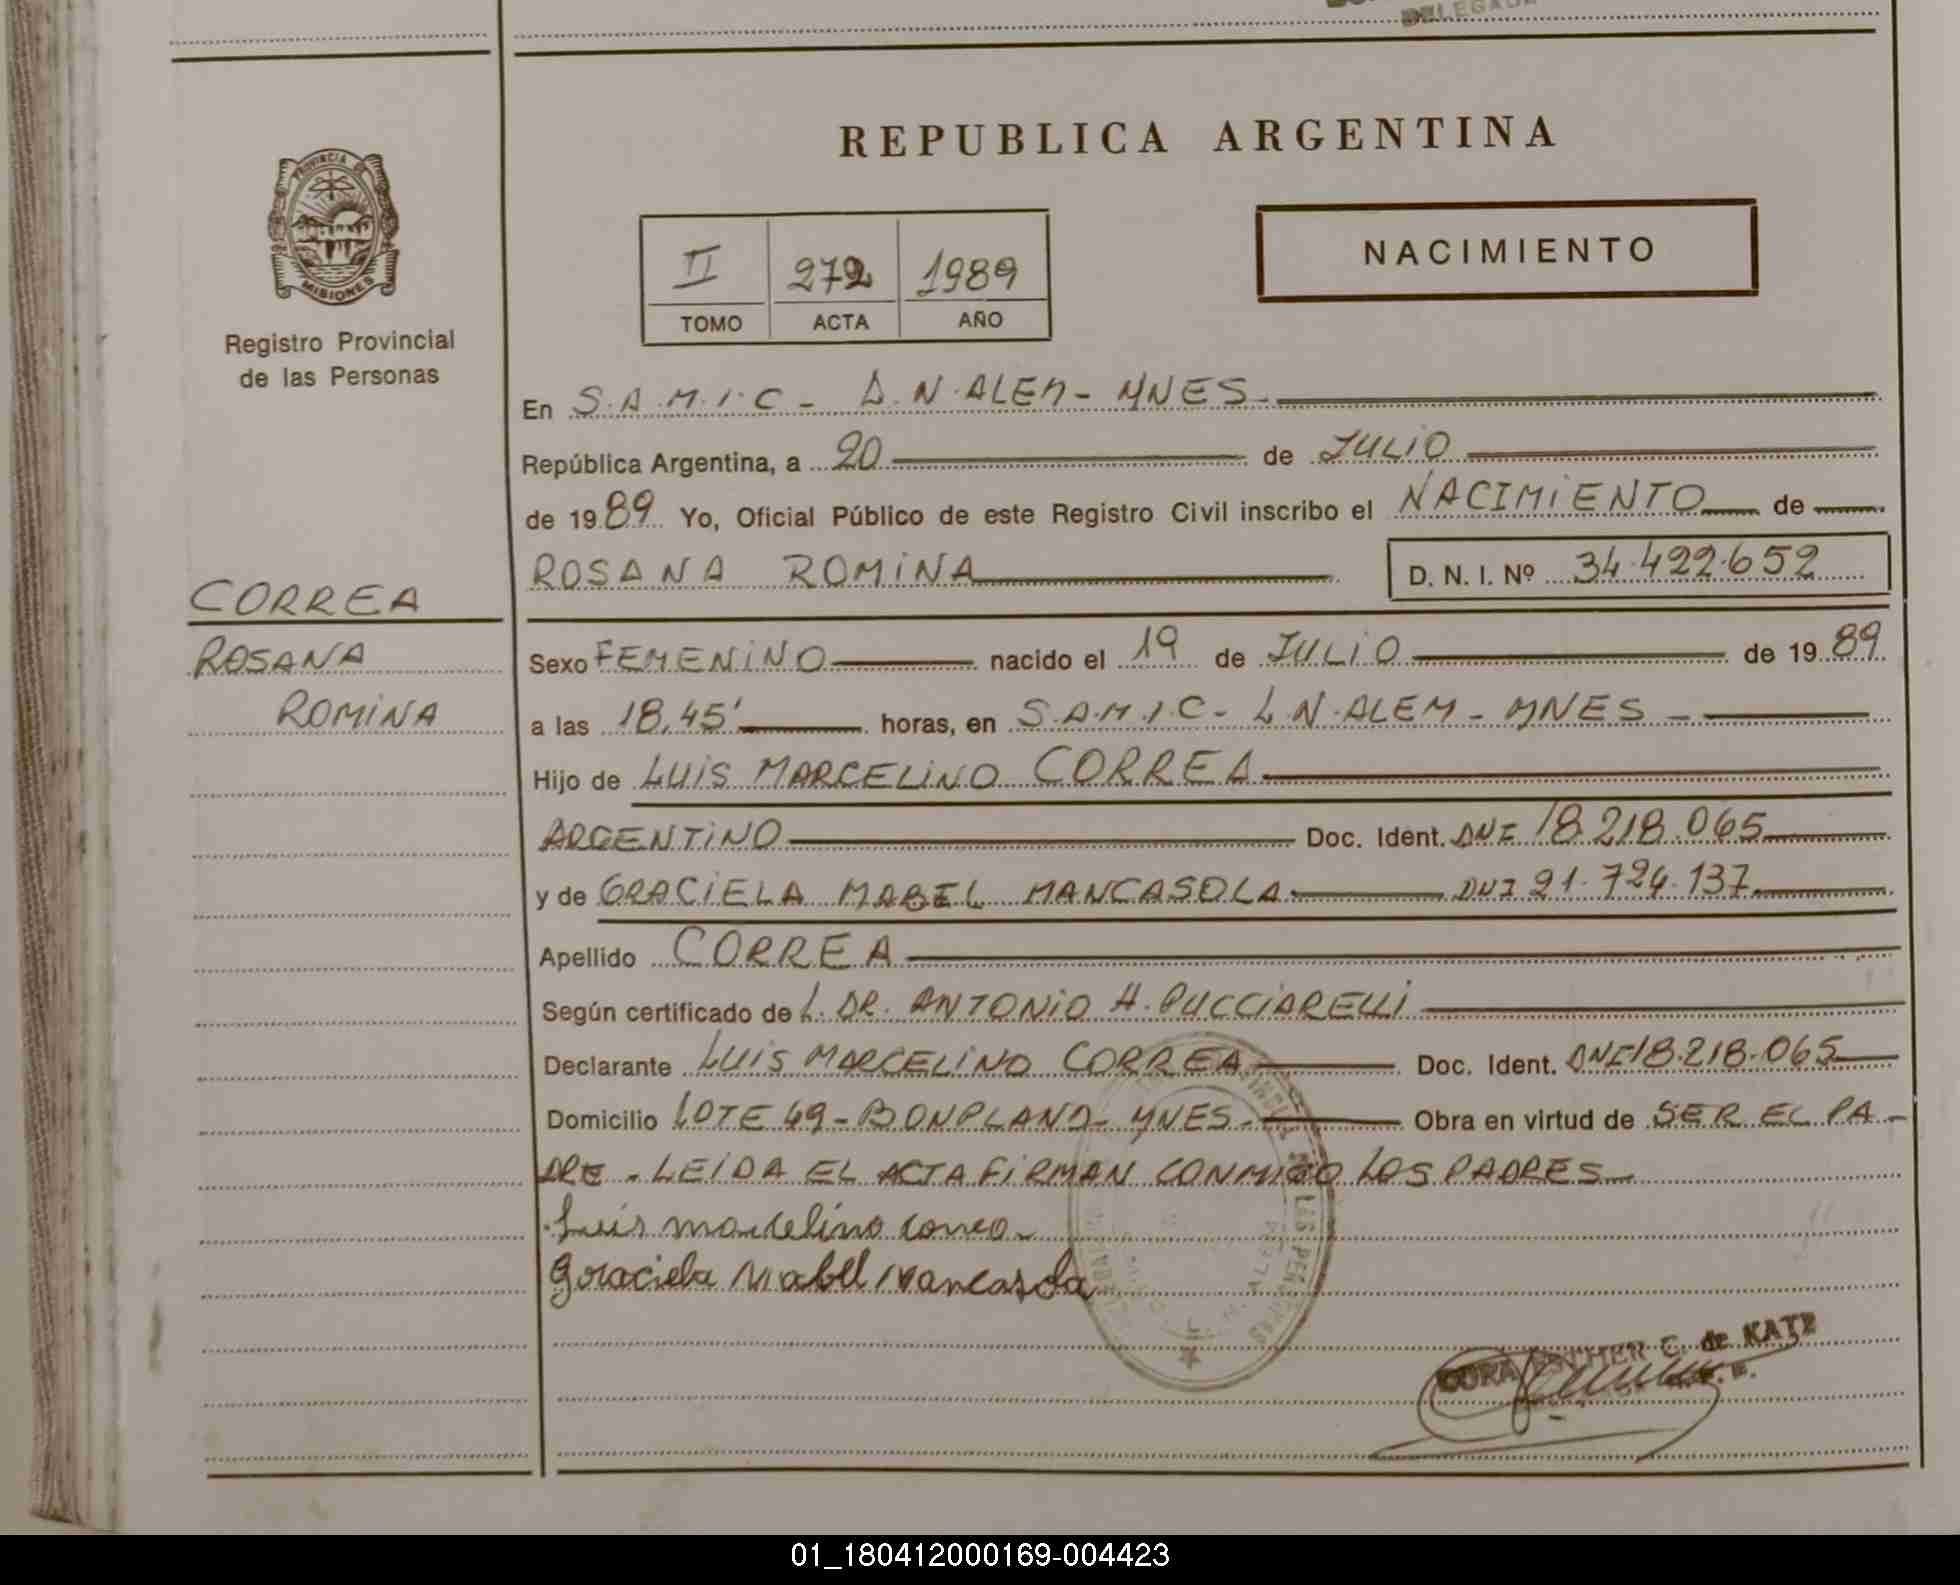 DELEGADE
REPUBLICA ARGENTINA
PROVINCIA DE
MISIONES
Registro Provincial
de las Personas
II 272 1989
TOMO ACTA AÑO
NACIMIENTO
En S.A.M.I.C - L.N.ALEM - MNES -
República Argentina, a 20 de JULIO
de 1989 Yo, Oficial Público de este Registro Civil inscribo el NACIMIENTO de
ROSANA ROMINA D. N. I. Nº 34.422.652
CORREA
ROSANA
ROMINA
Sexo FEMENINO nacido el 19 de JULIO de 1989
a las 18,45' horas, en S.A.M.I.C - L.N.ALEM - MNES -
Hijo de LUIS MARCELINO CORREA
ARGENTINO Doc. Ident. DNI 18.218.065
y de GRACIELA MABEL MANCASOLA DNI 21.724.137
Apellido CORREA
Según certificado de L. DR. ANTONIO H. PUCCIARELLI
Declarante LUIS MARCELINO CORREA Doc. Ident. DNI 18.218.065
Domicilio LOTE 49 - BONPLAND - MNES - Obra en virtud de SER EL PA-
DRE - LEIDA EL ACTA FIRMAN CONMIGO LOS PADRES
Luis marcelino correa
Graciela Mabel Mancasola
LAS PERSONAS
N. ALEM
ESTHER C. de KATZ
01_180412000169-004423